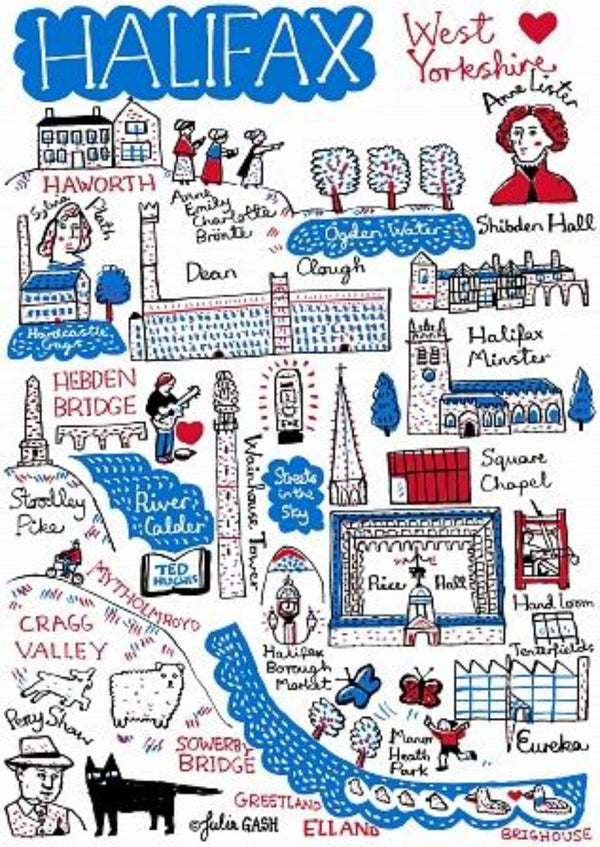 HALIFAX
West
Yorkshire
Anne Lister
HAWORTH
Anne
Emily
Charlotte
Brontë
Sylvia Plath
Ogden Water
Shibden Hall
Dean Clough
Hardcastle
Crags
Halifax
Minster
HEBDEN
BRIDGE
Wainhouse Tower
Streets
in the
Sky
Square
Chapel
Stoodley
Pike
River
Calder
TED
HUGHES
Piece Hall
Hand loom
MYTHOLMROYD
CRAGG
VALLEY
Halifax
Borough
Market
Tenterfields
Percy Shaw
Manor
Heath
Park
Eureka
SOWERBY
BRIDGE
GREETLAND
©Julia GASH
ELLAND
BRIGHOUSE